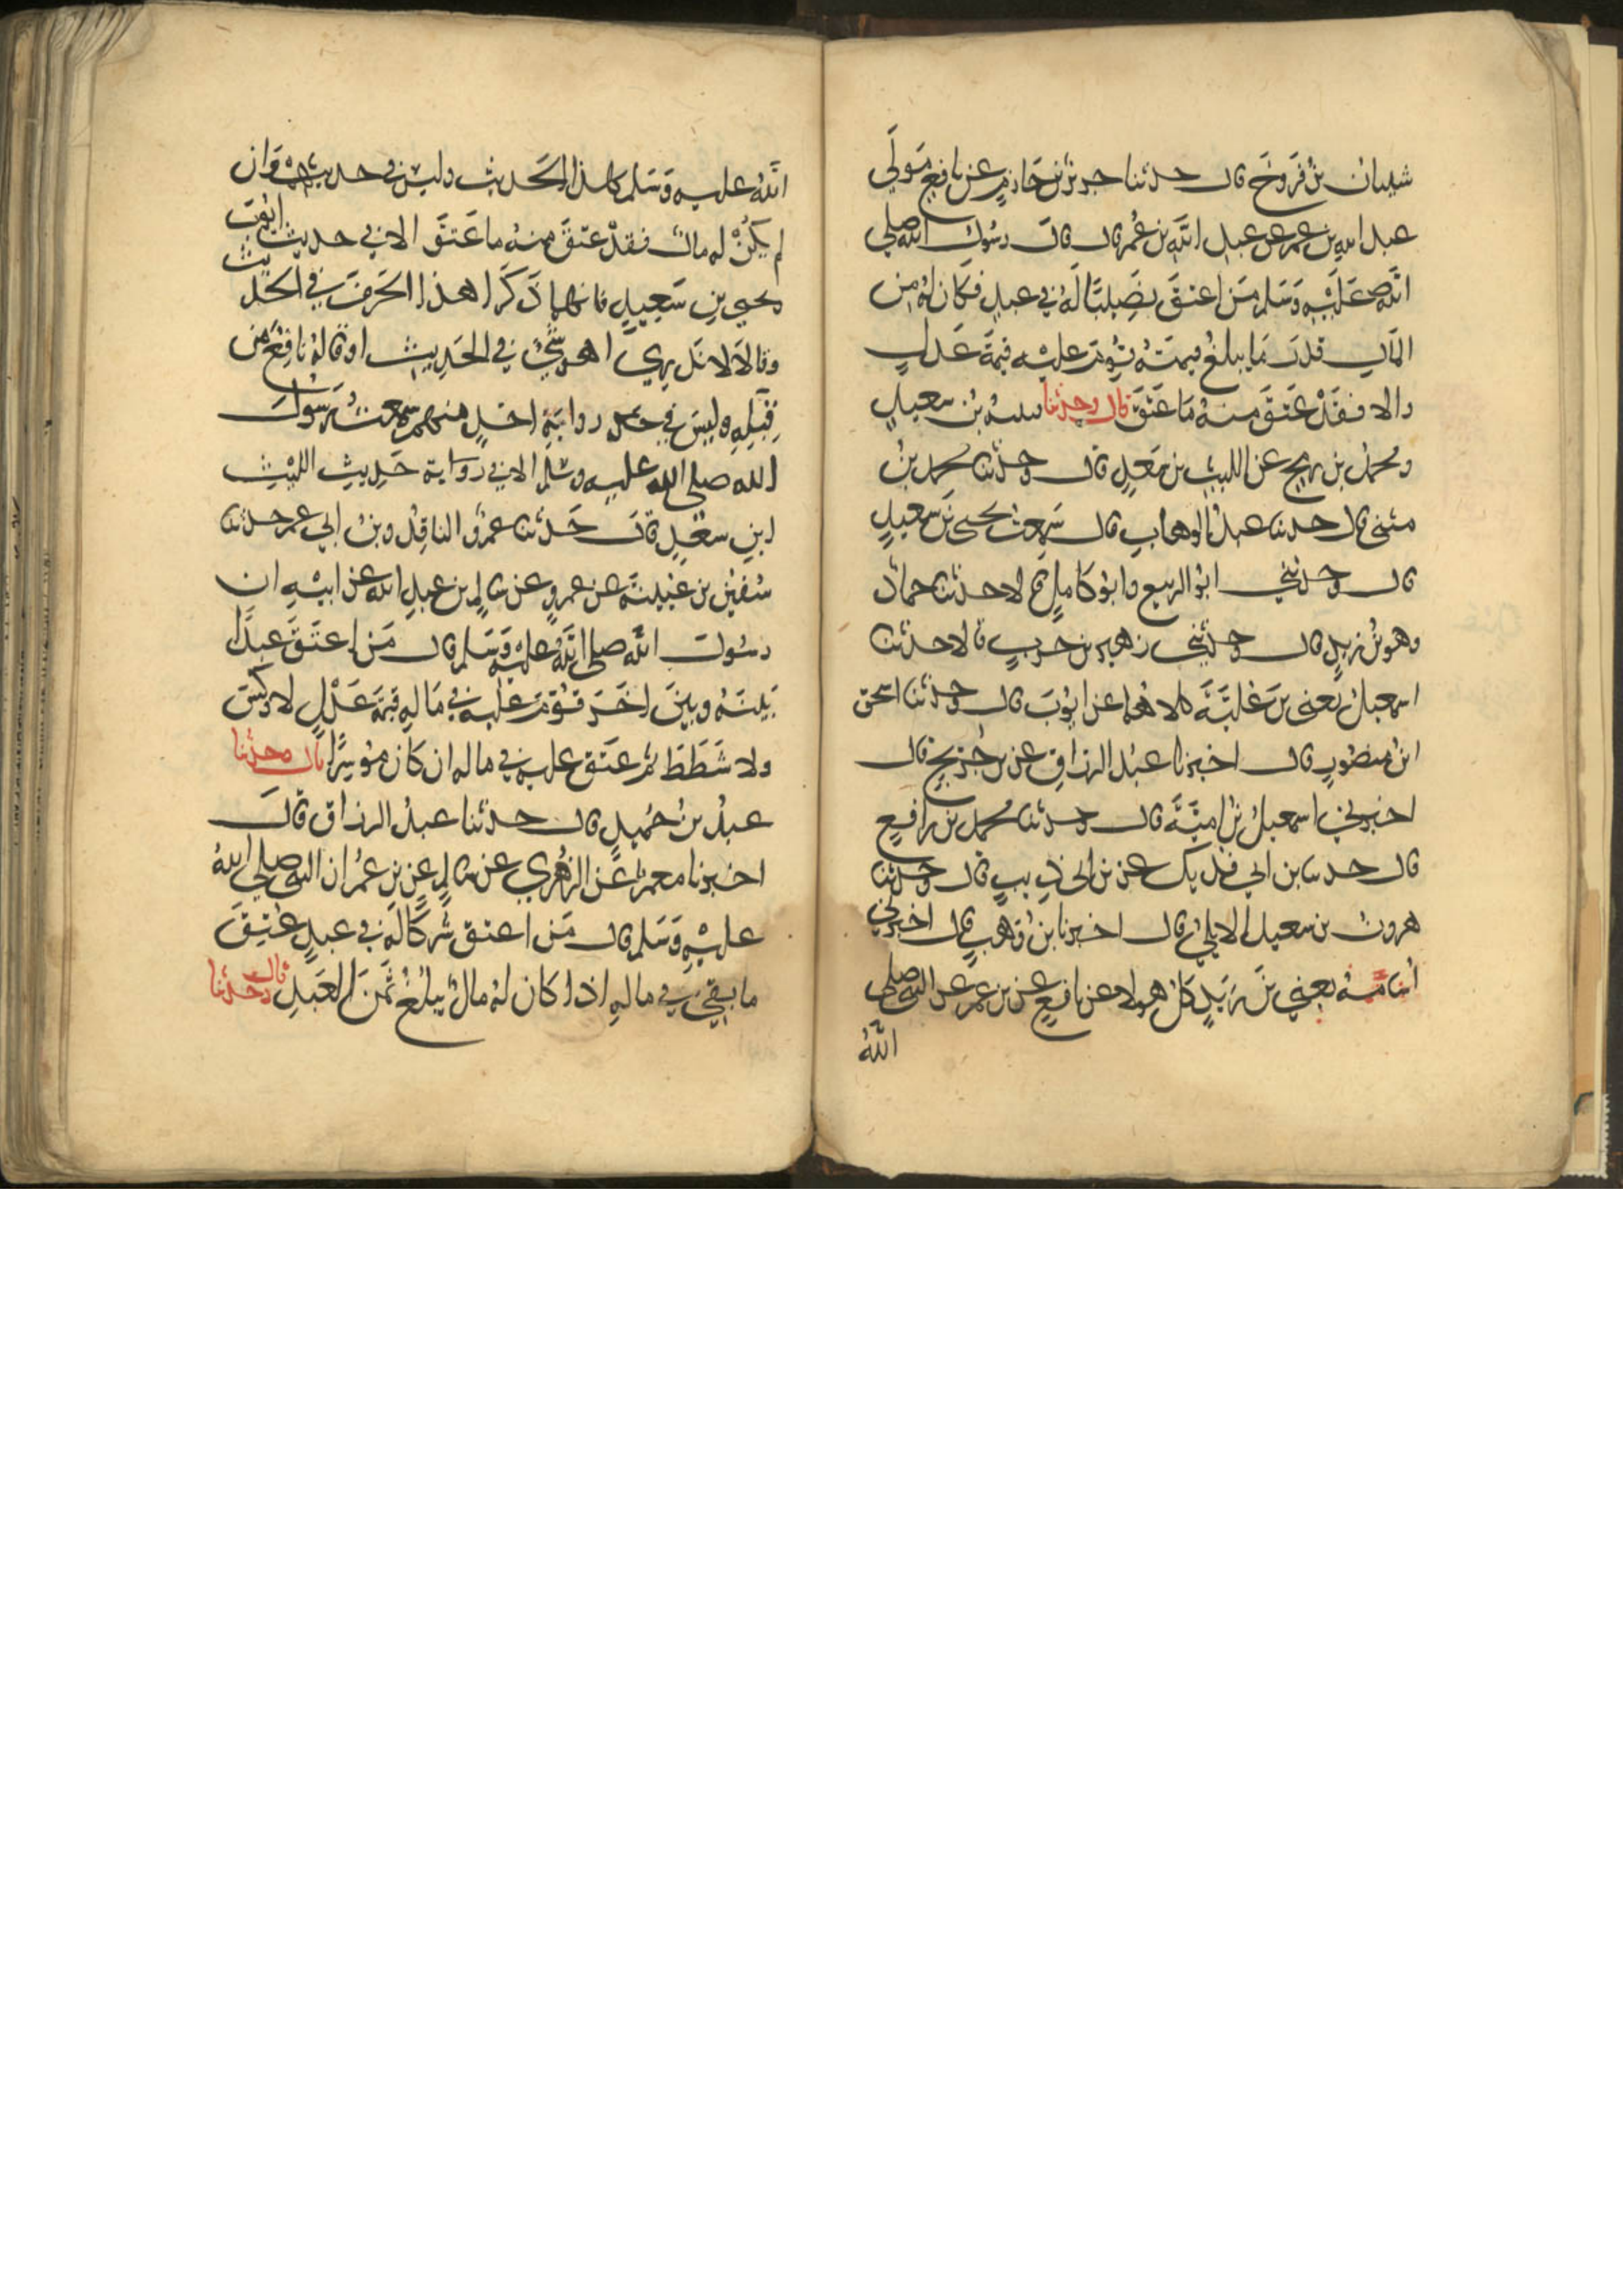 شيبان بن فَرّوخَ قال حدثنا جرير بن حَازمٍ عن نافعٍ مَولَى
عبد الله بن عمر عن عبد الله بن عُمر قال قال رسُول الله صلى
اللهُ عَلَيْهِ وَسَلم مَن اعتقَ نصِيبًا لَهُ في عبدٍ فكان لهُ من
المَالِ قدرَ مَا يبلغُ قيمتهُ قُوِّمَ عليْه قيمَةَ عَدلٍ
والا فقَدْ عَتقَ منهُ مَا عَتَقَ قال وحدثنا قتيبه بْن سعيدٍ
ومحمدُ بن رمحٍ عن الليث بن سَعدٍ قال وحدثنا محمد بنُ
مثنى قال حدثنا عبدُ الوهابِ قال سَمِعتُ يحيى بنَ سَعيدٍ
قال وحدثني ابوُ الربيع وابوُ كامِلٍ قالا حدثنا حمادٌ
وهو بْنُ زيدٍ قال وحدثني زهير بن حَربٍ قالا حدثنا
اسمعيلُ يعني بنَ عُليَّةَ كلاهُما عن ايوُبَ قال وحدثنا اسحق
ابنُ منصُورٍ قال اخبرنا عبدُ الرزاقِ عن بن جُريجٍ قال
اخبرني اسمعيلُ بْنُ اميَّةَ قال وحدثنا محمد بن رافعٍ
قال حدثنا بن ابي فديك عن بن ابي ذيبٍ قال وحدثنا
هرون بن سعيد الايليُ قال اخبرنا بنُ وَهبٍ قال اخبرني
اُسَامَةُ يعني بنَ زيَدٍ كلُ هولاء عن نافعٍ عن بن عمر عن النبي صلى
اللهُ
اللهُ عليهِ وَسَلم بهذا الحَديث وليس في حديثهِمْ وَان
لم يكُنْ له مالٌ فقدْ عتقَ منهُ ما عَتقَ الا في حديث ايوُبَ
ويحيى بنِ سَعِيدٍ فانهما ذَكَرَا هذا الحَرفَ في الحديث
وقالاَ لا نَدرِي اهو شَيْءٌ في الحَدِيثِ اوقالهُ نافعٌ من
قِبَلِهِ وليسَ في رِوايَةِ احَدٍ منهم سمعتُ رَسُولَ
الله صلى الله عليه وسلم الا في روَاية حَديثِ الليْثِ
ابنِ سَعْدٍ قال حَدثنا عَمرٌو الناقِدُ وبنُ ابي عمر حدثنا
سُفيٰن بن عُيَينةَ عن عمروٍ عن سَالِمِ بن عبدِ الله عن ابيْهِ ان
رسُولَ الله صلى اللهُ عليْهِ وَسَلم قال مَن اعتَقَ عبدًا
بَينَهُ وبينَ اخَرَ قُوِّمَ عَليه في مَالهِ قيمَةَ عَدْلٍ لا وَكسَ
ولا شَطَطَ ثم عَتَقَ عليه في ماله ان كَانَ مُوسِرًا قال وحدثنا
عبدُ بنُ حُميدٍ قال حدثنا عبدُ الرزاق قالَ
اخبرنا معمرٌ عَن الزهُري عن سَالمٍ عن بنِ عُمر ان النبي صلى اللهُ
عليْهِ وَسَلم قال مَن اعتق شركًا لَهُ في عبدٍ عُتِقَ
ما بقيَ في مالهِ اذا كان لهُ مالٌ يبلُغُ ثَمنَ العَبدِ قال وحدثنا